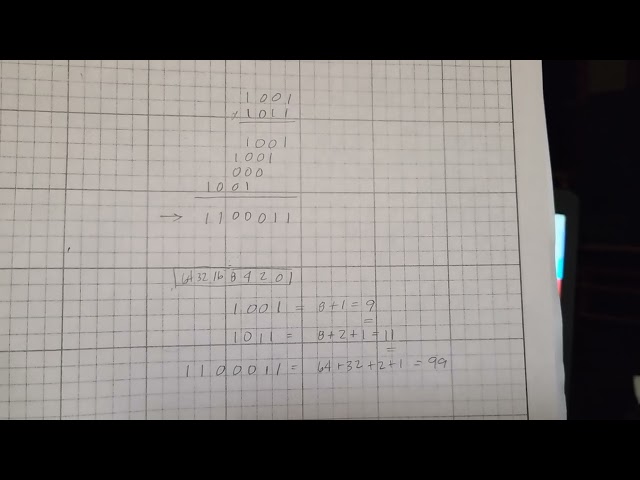 1001
x 1011
1001
1001
000
1001
→ 1100011
64 32 16 8 4 2 01
1001 = 8+1 = 9
1011 = 8+2+1 = 11
1100011 = 64+32+2+1 = 99